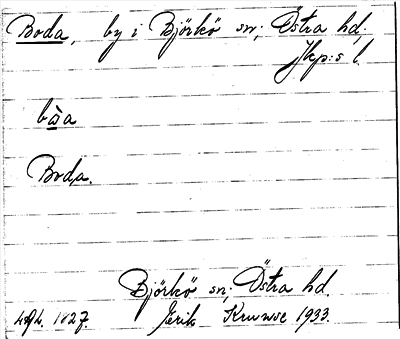 Boda, by i Björkö sn; Östra hd;
Jkp:s l.
bω̱a
Boda.
Björkö sn; Östra hd.
1827. Erik Kruuse 1933.